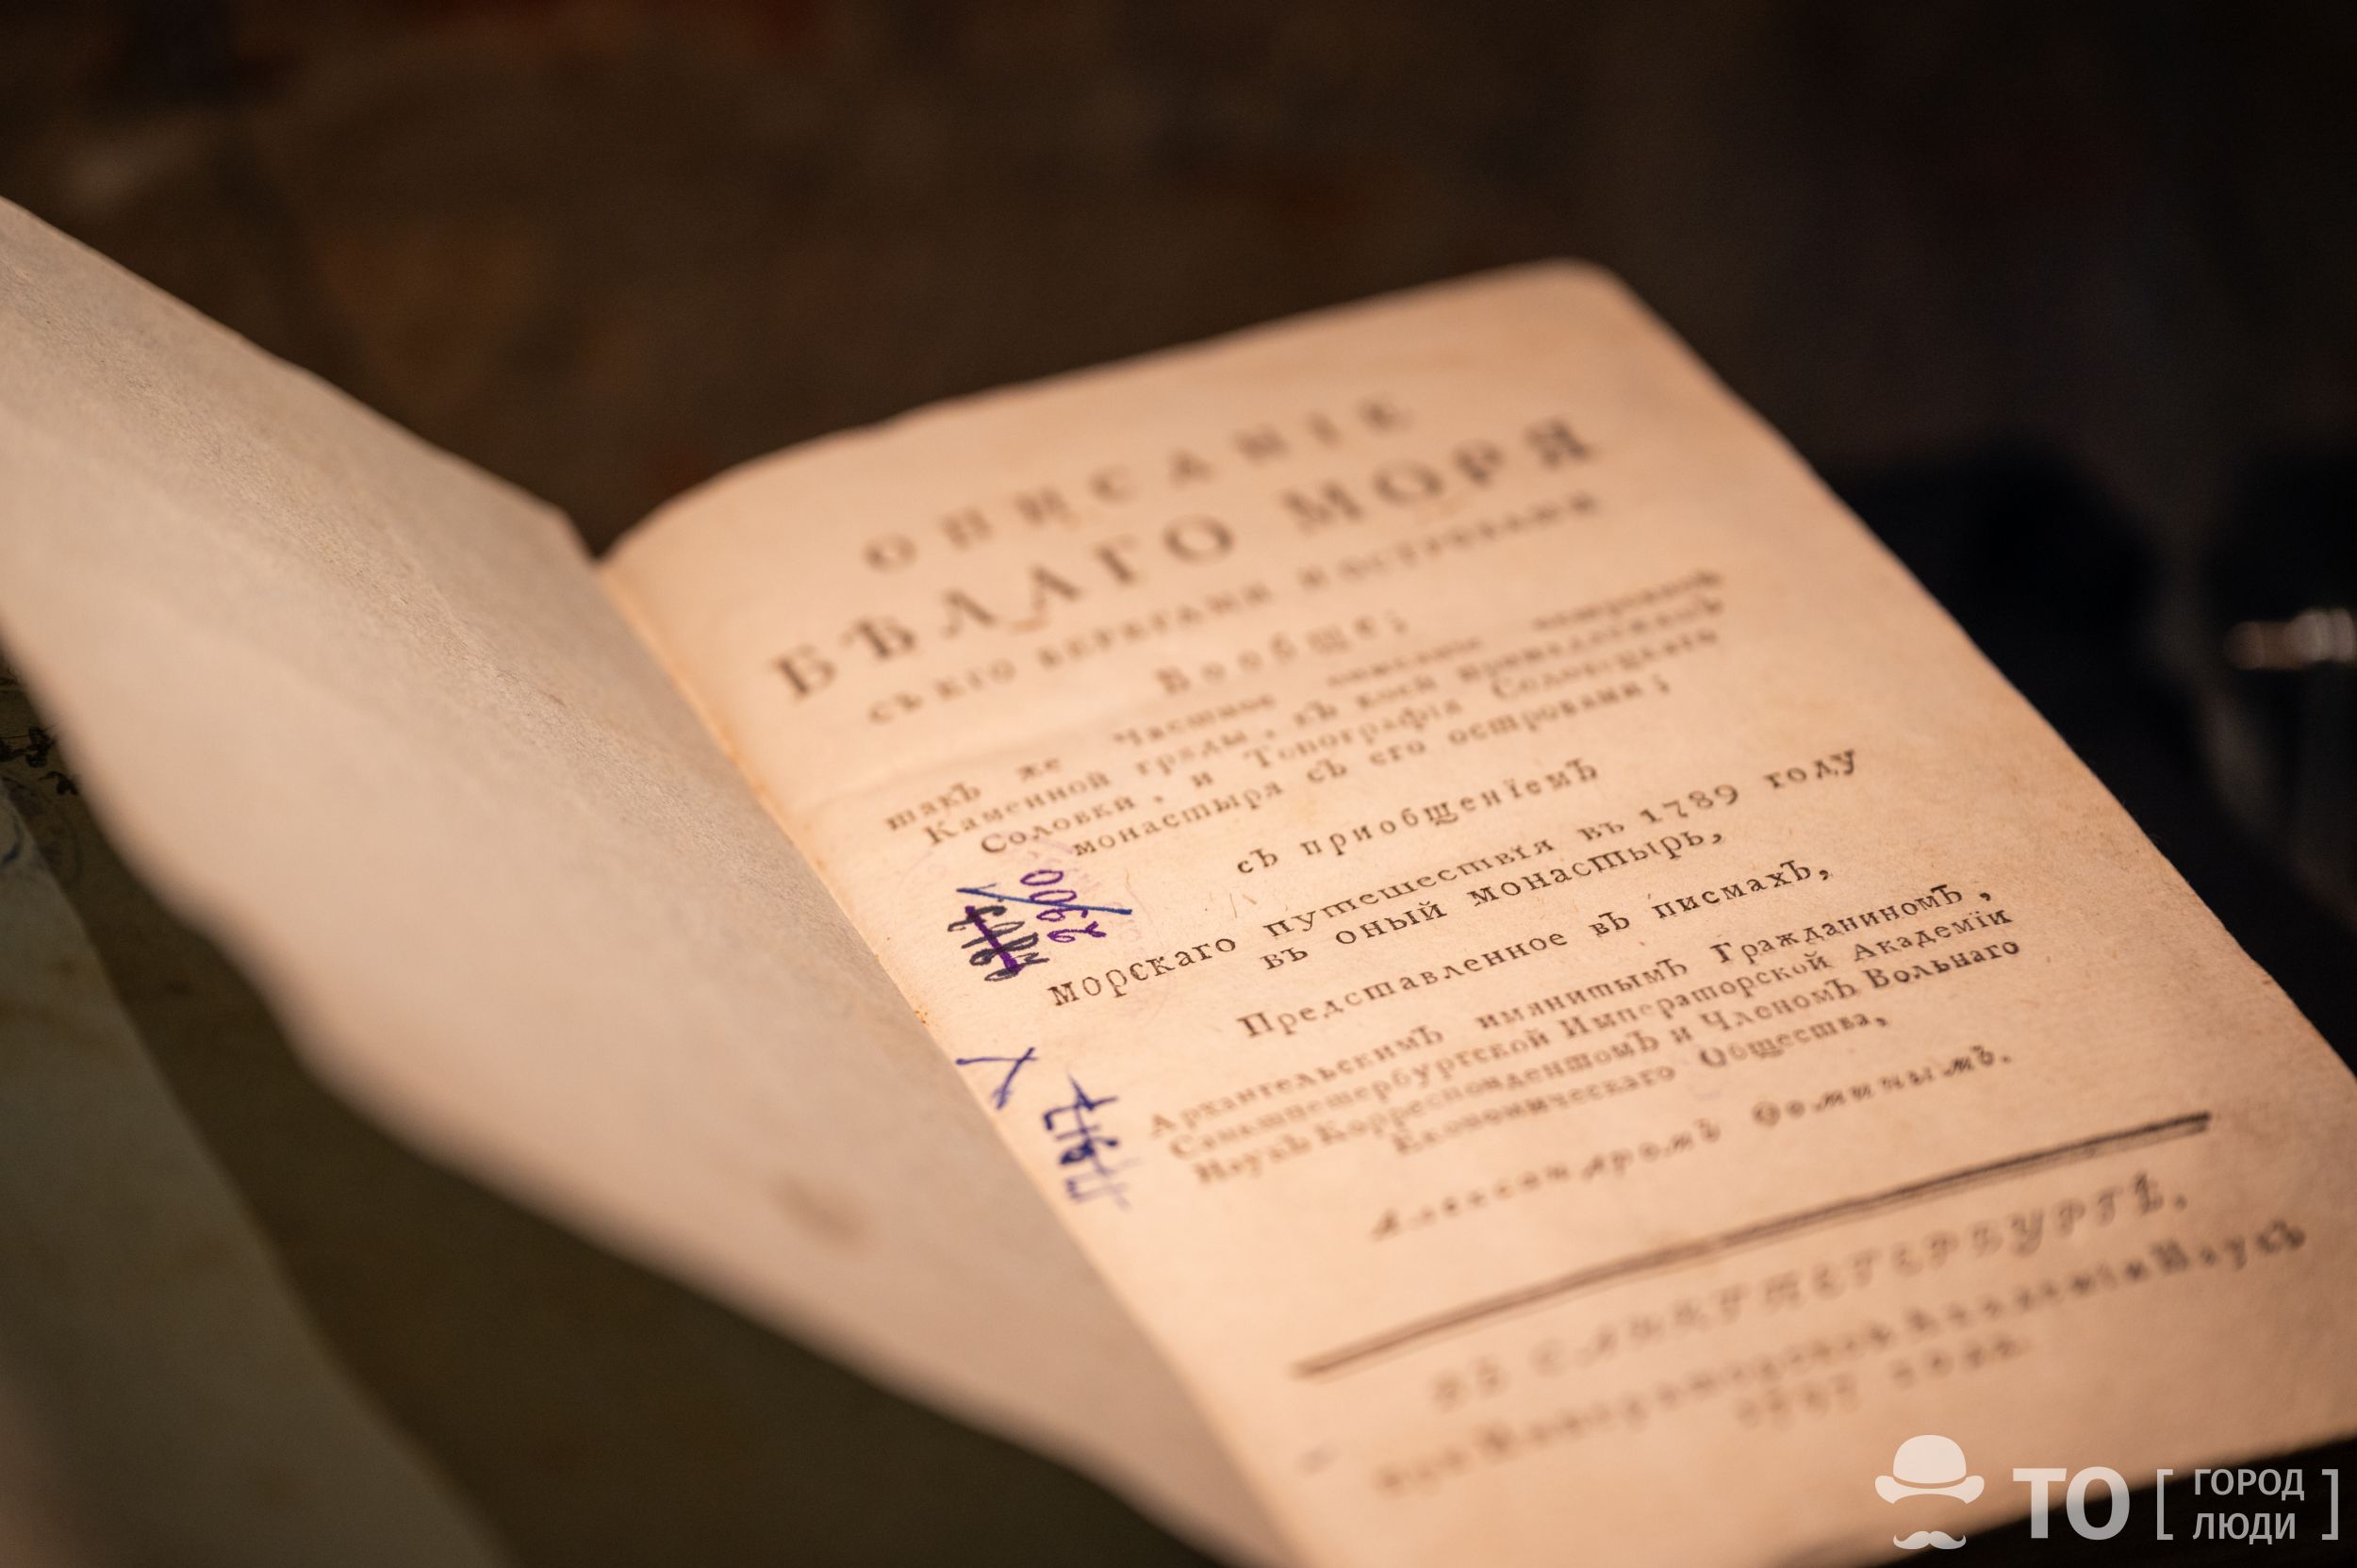 ОПИСАНІЕ
БѢЛАГО МОРЯ
СЪ ЕГО БЕРЕГАМИ И ОСТРОВАМИ
Вообще;
такъ же Частное описаніе островной
Каменной гряды, къ коей принадлежатъ
Соловки, и Топографія Соловецкаго
монастыря съ его островами;
съ приобщеніемъ
морскаго путешествія въ 1789 году
въ оный монастырь,
Представленное въ писмахъ,
Архангельскимъ имянитымъ Гражданиномъ,
Санктпетербургской Императорской Академіи
Наукъ Корреспондентомъ и Членомъ Вольнаго
Економическаго Общества,
Александромъ Фоминымъ.
ВЪ САНКТПЕТЕРБУРГѢ,
при Императорской Академіи Наукъ
1797 года.
2900
ТО [ ГОРОД
ЛЮДИ ]